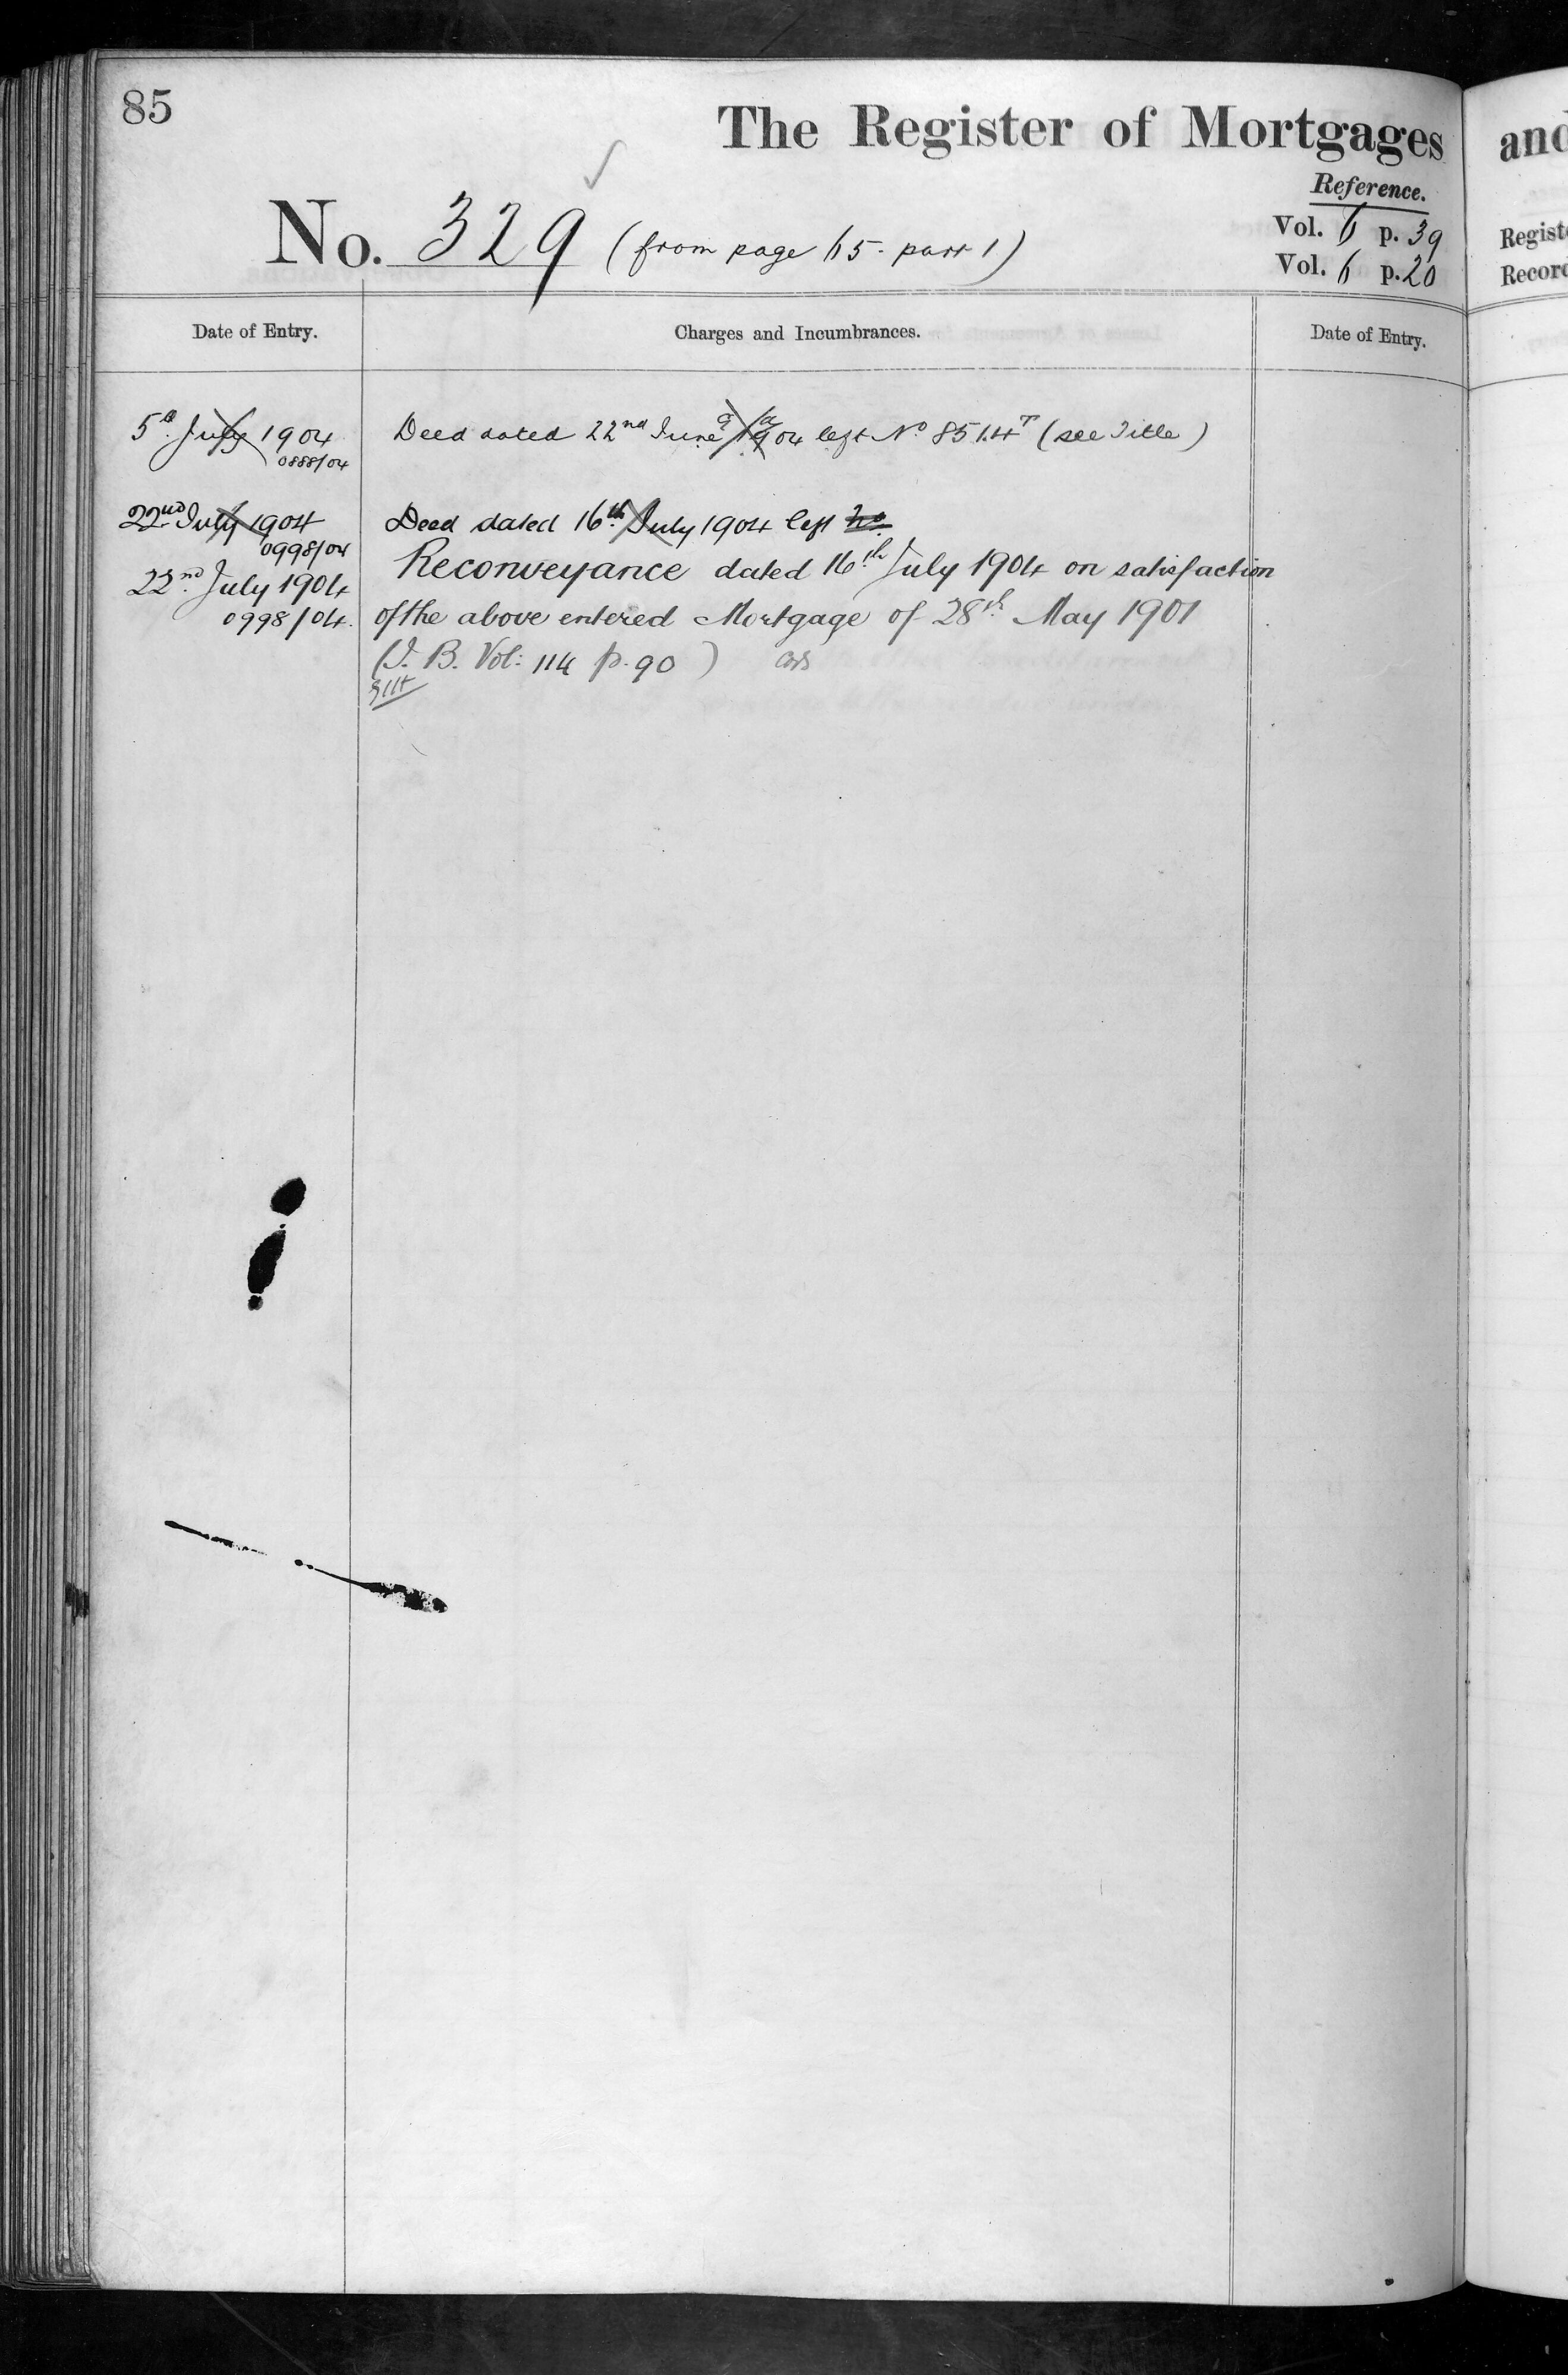 85
The Register of Mortgages
and
Reference.
No. 329 (from page 65. part 1)
Vol. 6 p. 39
Vol. 6 p. 20
Regist
Record
Date of Entry.
Charges and Incumbrances.
Date of Entry.
5th July 1904
Deed dated 22nd June 1904 left No 8514T (see Title)
0888/04
22nd July 1904
Deed dated 16th July 1904 left No
0998/04
22nd July 1904
Reconveyance dated 16th July 1904 on satisfaction
0998/04.
of the above entered Mortgage of 28th May 1901
(I. B. Vol: 114 p. 90)